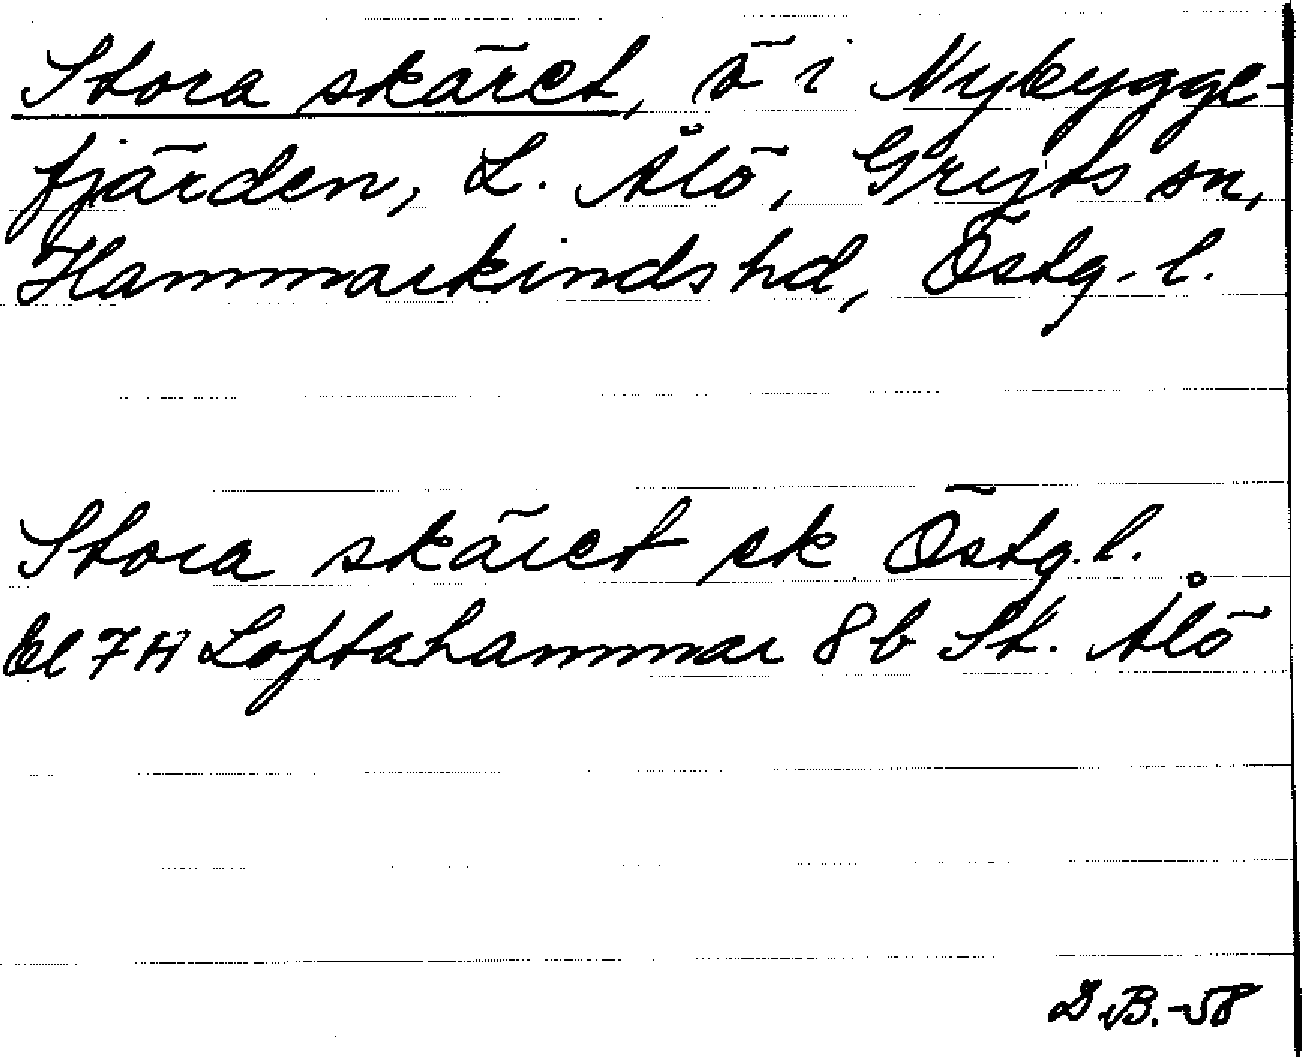 Stora skäret, ö i Nybygge-
fjärden, L. Ålö, Gryts sn,
Hammarkinds hd, Östg. l.
Stora skäret ek Östg. l.
Bl 7H Loftahammar 8b St. Ålö
D.B.-58